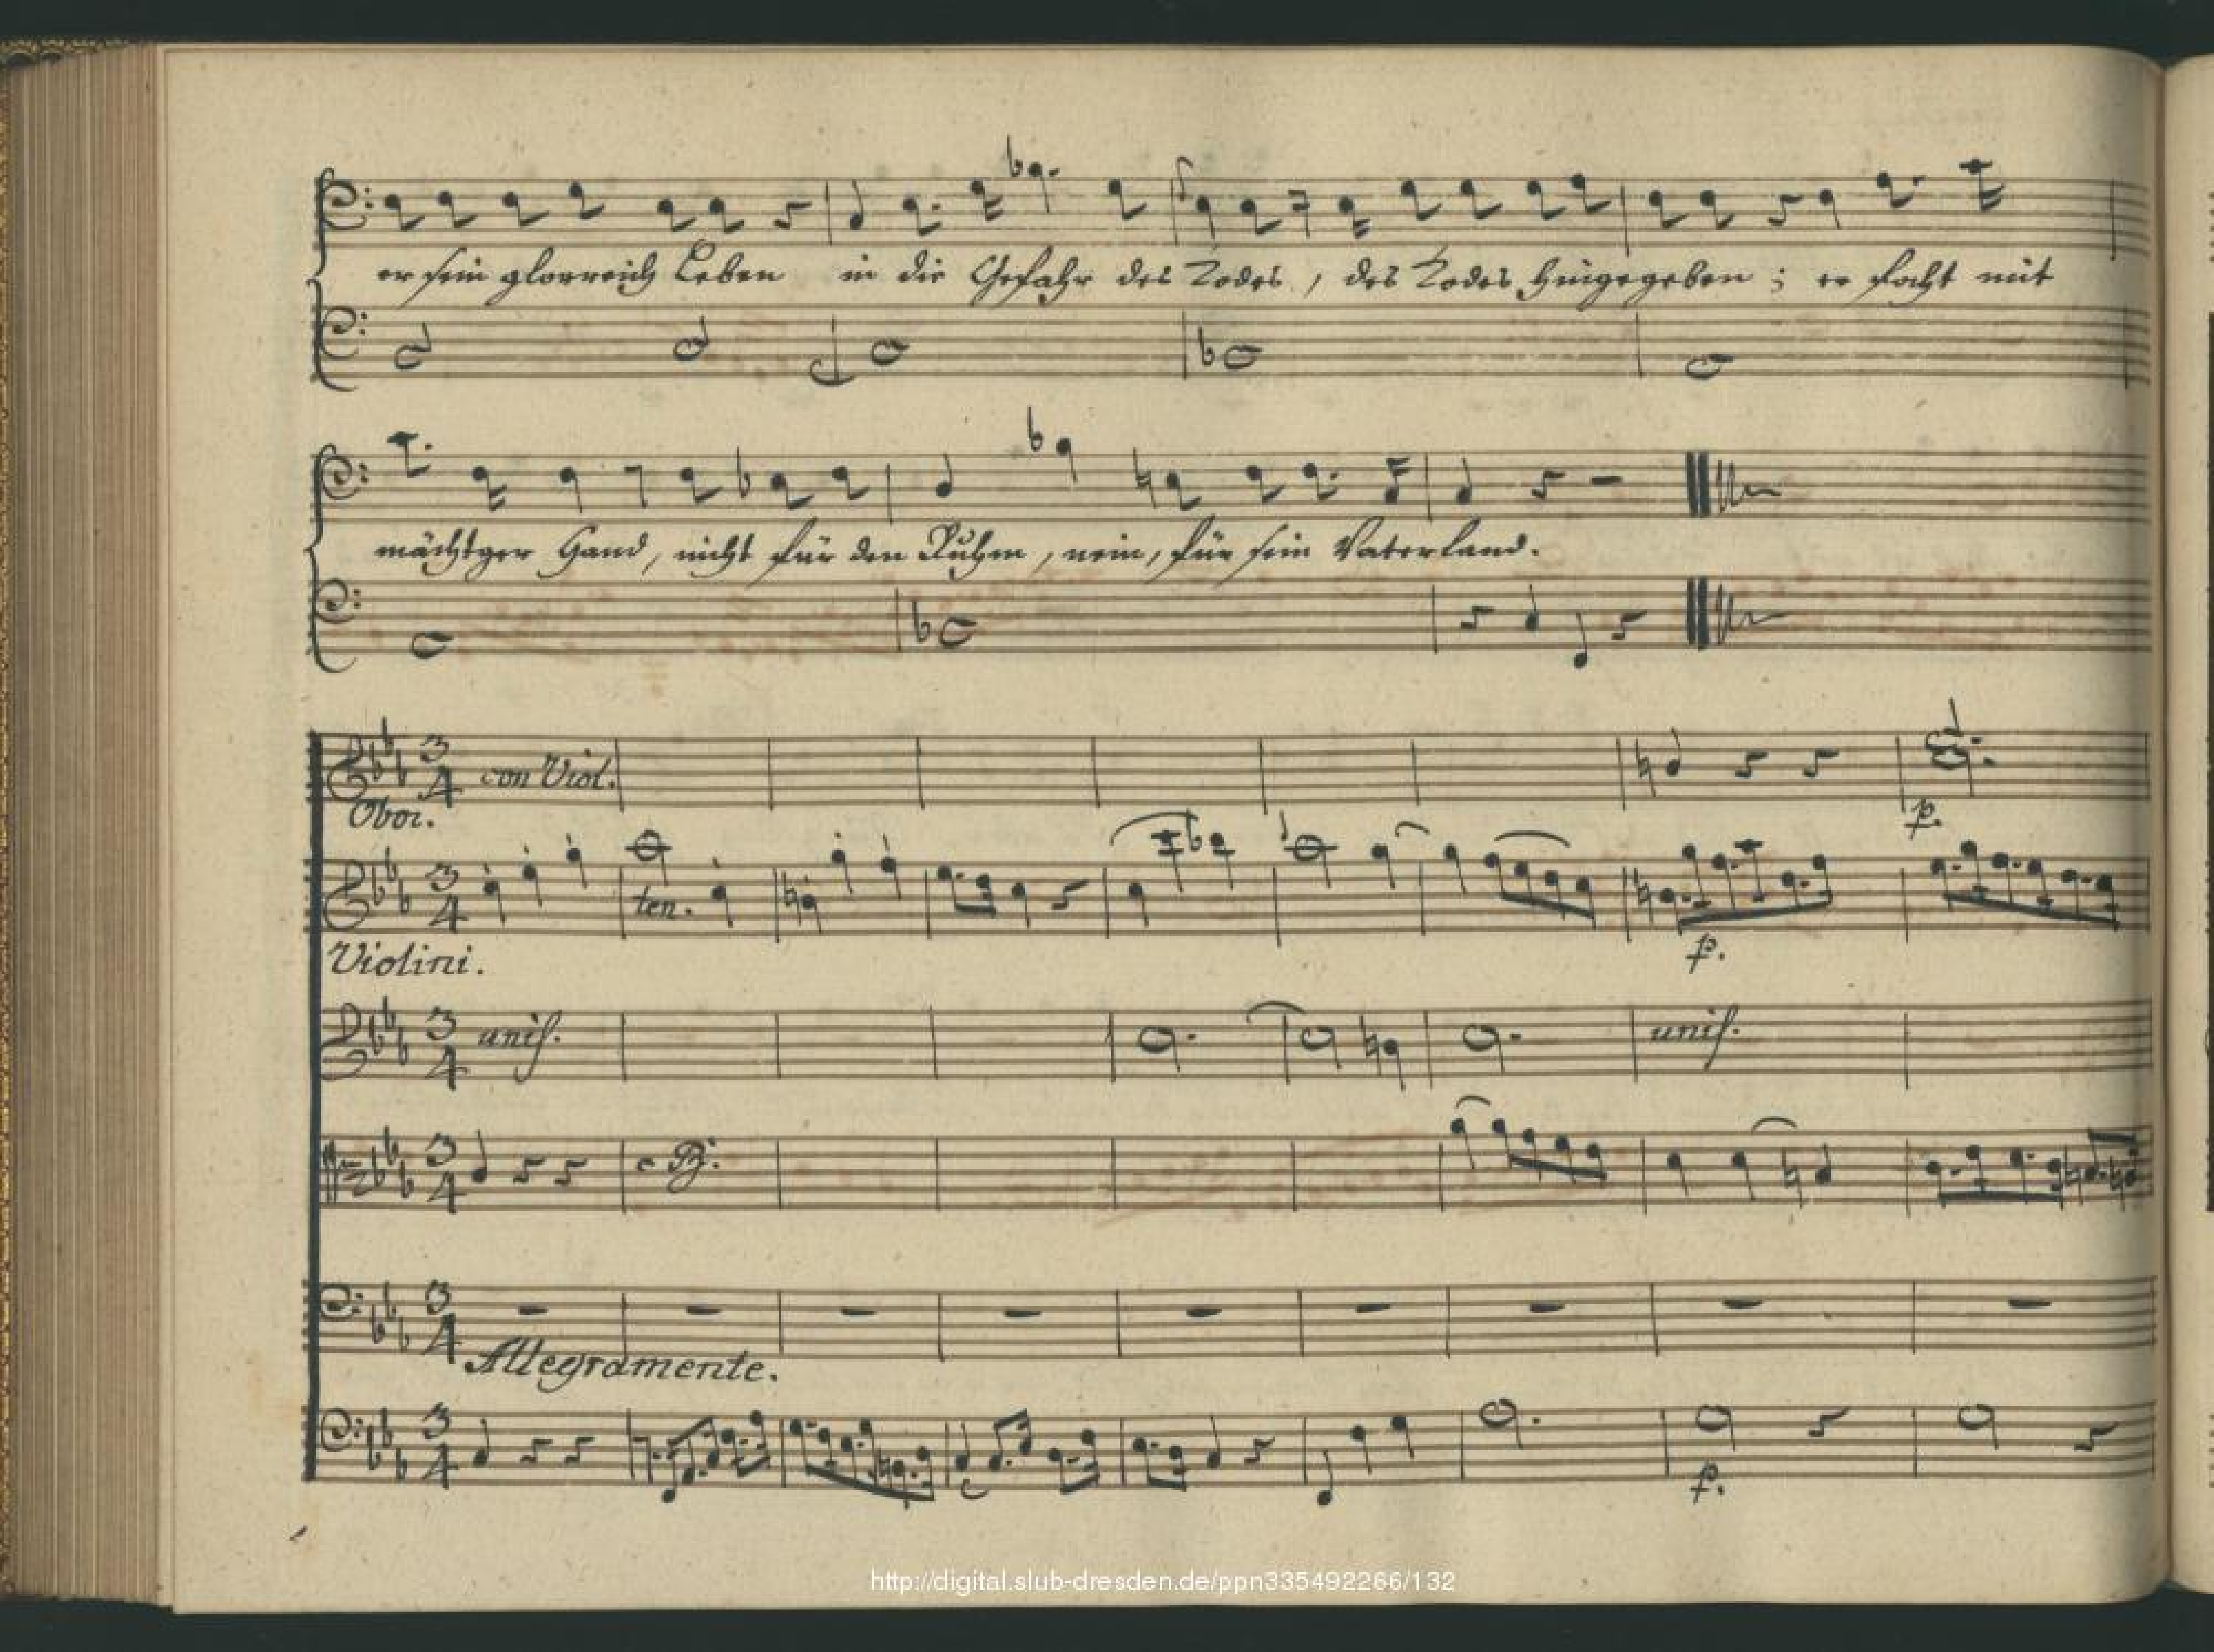 er sein glorreich Leben in die Gefahr des Todes, des Todes hingegeben; er focht mit
mächtger Hand, nicht für den Ruhm, nein, für sein Vaterland.
3/4 con Viol.
Oboi.
p.
3/4 ten.
Violini.
p.
3/4 unis. unis.
3/4 c B.
3/4
Allegramente.
3/4
p.
http://digital.slub-dresden.de/ppn335492266/132